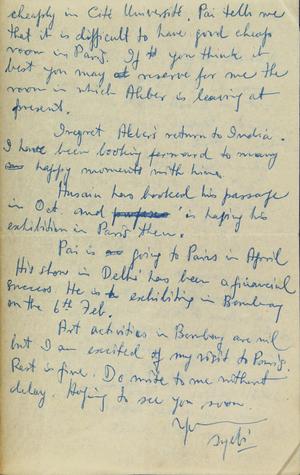 cheaply in Cité Université. Pai tells me
that it is difficult to have good cheap
room in Paris. If you think it
best you may reserve for me the
room in which Akber is leaving at
present.
I regret Akber's return to India.
I have been looking forward to many
happy moments with him.
Husain has booked his passage
in Oct. and is hoping his
exhibition in Paris then.
Pai is going to Paris in April
His show in Delhi has been a financial
success. He is exhibiting in Bombay
on the 6th Feb.
Art activities in Bombay are nil
but I am excited of my visit to Paris.
Rest is fine. Do write to me without
delay. Hoping to see you soon.